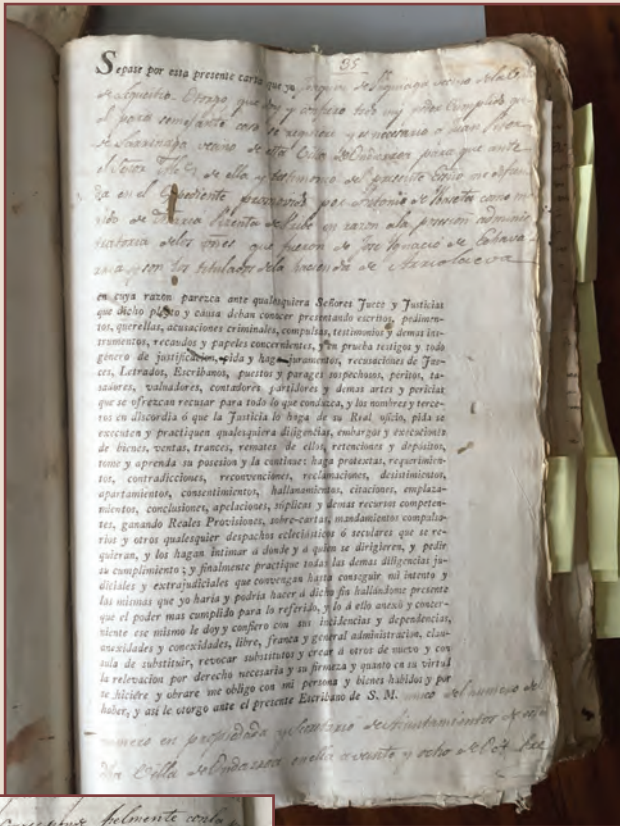 35
Sepase por esta presente carta que yo vecino de la
de Lequeitio. Otorgo, que doy y confiero todo mi poder cumplido
el para semejante caso se requiere y es necesario a Juan
de Larrinaga vecino de esta Villa de Ondarroa para que ante
el Señor de ella y testimonio del presente me defien
da en el Expediente promovido por Antonio de como ma
rido de Maria de en razon a la posesion adminis
tratoria de los vnes que fueron de Jose Ignacio de Echava
rria y son los titulados de la hacienda de
en cuya razon parezca ante qualesquiera Señores Juece y Justicias
que dicho pleyto y causa deban conocer presentando escritos, pedimen-
tos, querellas, acusaciones criminales, compulsas, testimonios y demas ins-
trumentos, recaudos y papeles concernientes, y en prueba testigos y todo
género de justificacion, pida y haga juramentos, recusaciones de Jue-
ces, Letrados, Escribanos, puestos y parages sospechosos, peritos, ta-
sadores, valuadores, contadores partidores y demas artes y pericias
que se ofrezcan recusar para todo lo que conduzca, y los nombres y terce-
ros en discordia ó que la Justicia lo haga de su Real oficio, pida se
executen y practiquen qualesquiera diligencias, embargos y execuciones
de bienes, ventas, trances, remates de ellos, retenciones y depósitos,
tome y aprenda su posesion y la continue: haga protextas, requerimien-
tos, contradicciones, reconvenciones, reclamaciones, desistimientos,
apartamientos, consentimientos, hallanamientos, citaciones, emplaza-
mientos, conclusiones, apelaciones, súplicas y demas recursos competen-
tes, ganando Reales Provisiones, sobre-cartas, mandamientos compulso-
rios y otros qualesquier despachos eclesiásticos ó seculares que se re-
quieran, y los hagan intimar á donde y á quien se dirigieren, y pedir
su cumplimiento; y finalmente practique todas las demas diligencias ju-
diciales y extrajudiciales que convengan hasta conseguir mi intento y
las mismas que yo haria y podria hacer á dicho fin hallándome presente
que el poder mas cumplido para lo referido, y lo á ello anexó y concer-
niente ese mismo le doy y confiero con sus incidencias y dependencias,
anexidades y conexidades, libre, franca y general administracion, clau-
sula de substituir, revocar substitutos y crear á otros de nuevo y con
la relevacion por derecho necesaria y su firmeza y quanto en su virtud
se hiciére y obrare me obligo con mi persona y bienes habidos y por
haber, y así lo otorgo ante el presente Escribano de S. M. unico del numero de
numero en propiedad y Secretario de Ayuntamientos de esta
dha Villa de Ondarroa en ella a veinte y ocho de
fielmente con la